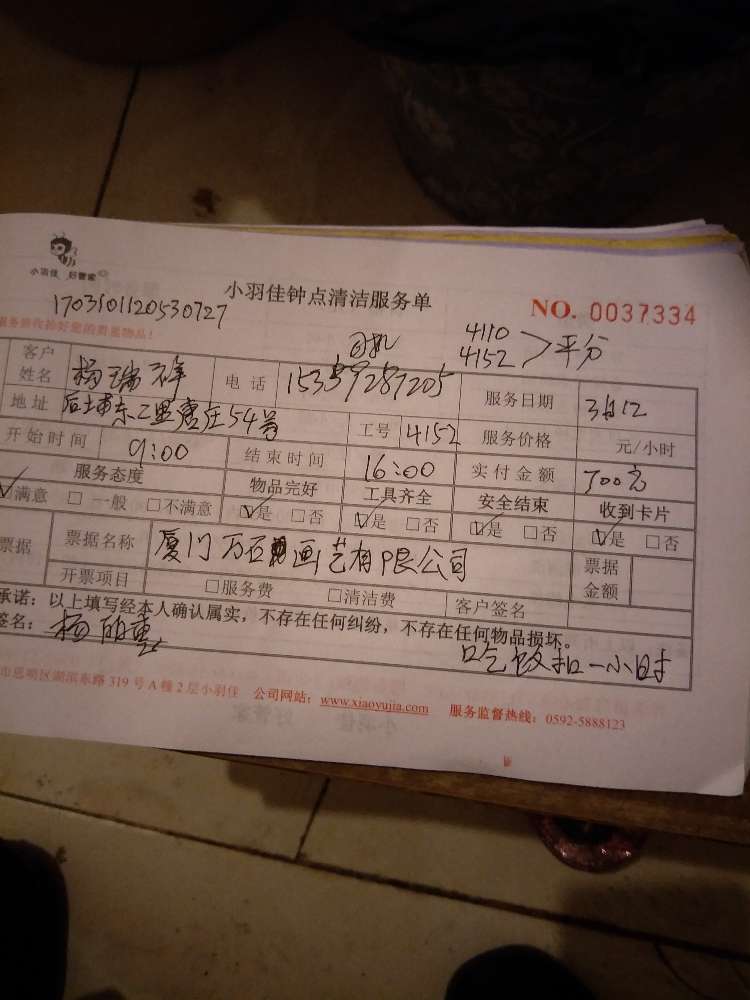 小羽佳 好管家
小羽佳钟点清洁服务单
NO. 0037334
1703101120530727
4110
4152 > 平分
客户姓名 杨瑞祥 电话 15359287205 服务日期 3月12
地址 后土甫东二里唐庄54号 工号 4152 服务价格 元/小时
开始时间 9:00 结束时间 16:00 实付金额 700元
服务态度 物品完好 工具齐全 安全结束 收到卡片
☑满意 □一般 □不满意 ☑是 □否 ☑是 □否 ☑是 □否 ☑是 □否
票据 票据名称 厦门万石画艺有限公司 票据金额
开票项目 □服务费 □清洁费 客户签名
承诺：以上填写经本人确认属实，不存在任何纠纷，不存在任何物品损坏。
签名： 吃饭扣一小时
市思明区湖滨东路 319 号 A 幢 2 层小羽佳 公司网站：www.xiaoyujia.com 服务监督热线：0592-5888123